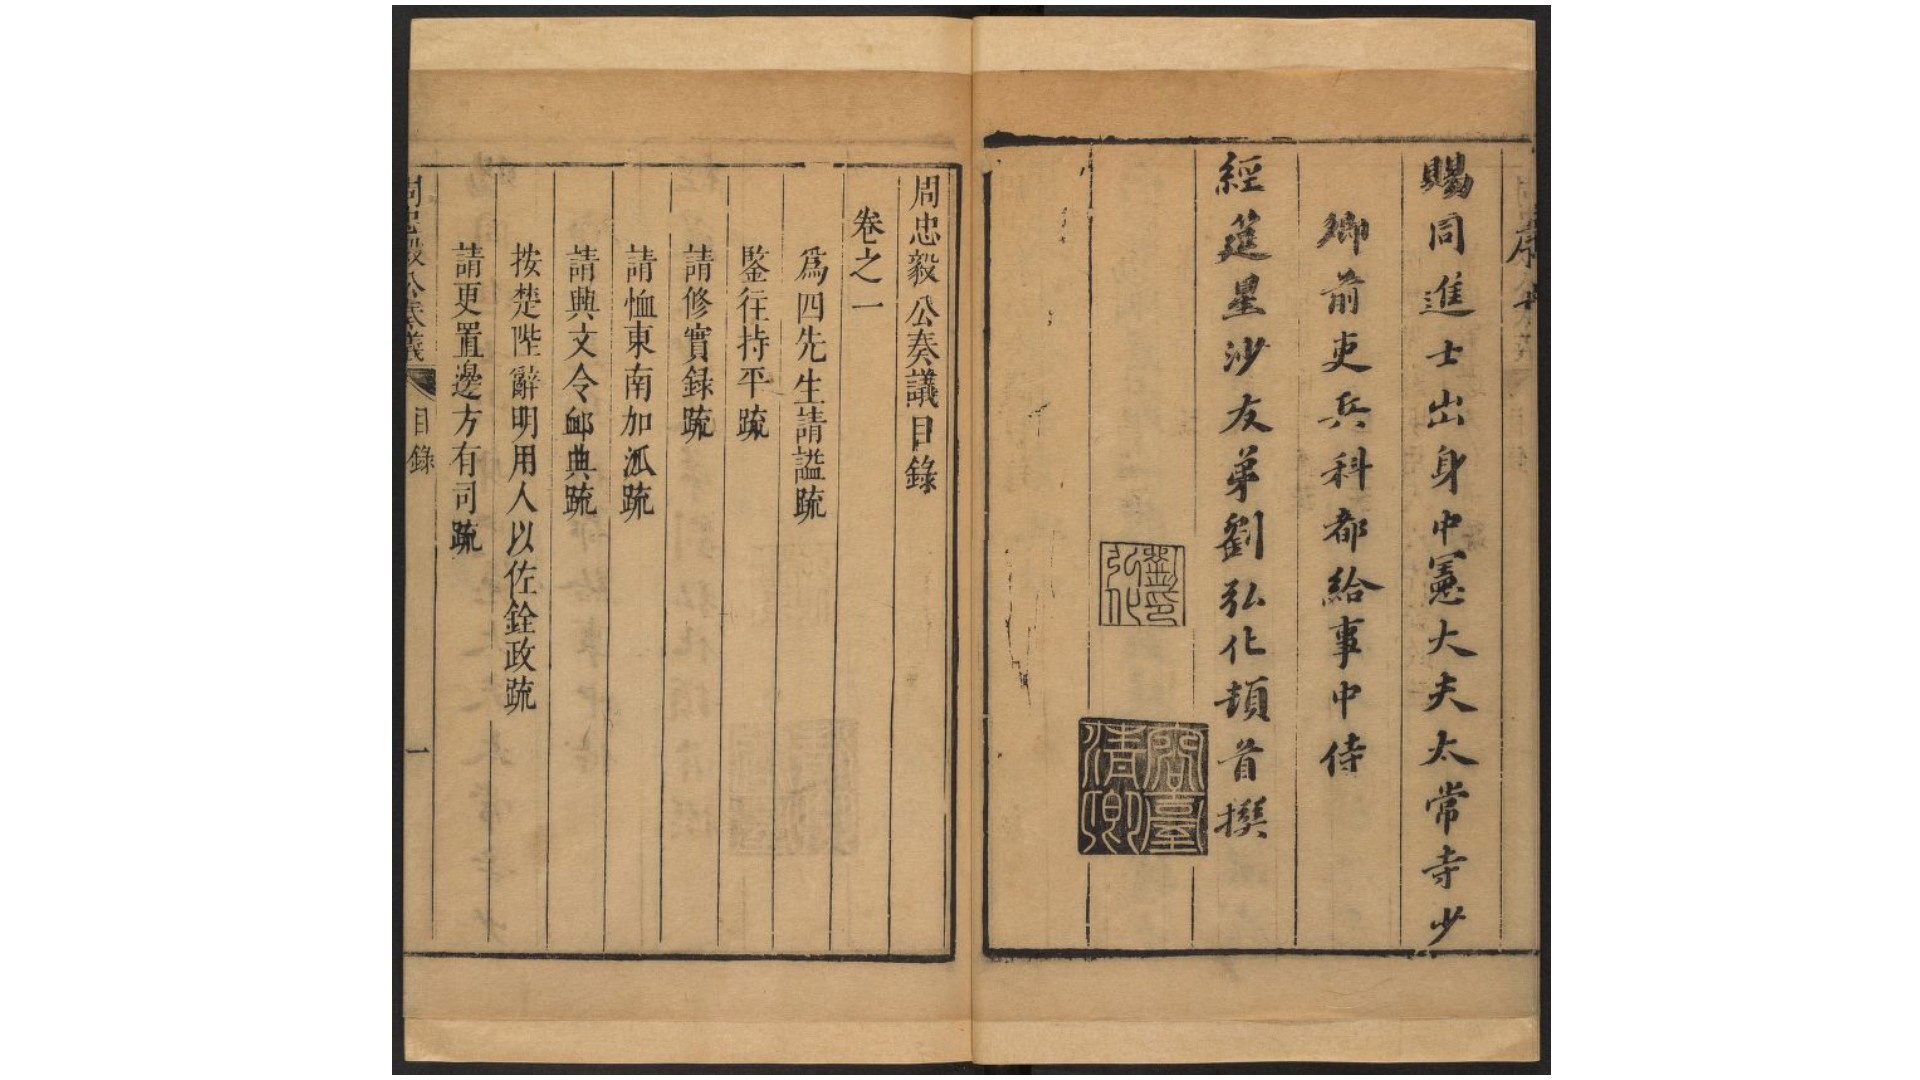 賜同進士出身中憲大夫太常寺少
卿前吏兵科都給事中侍
經筵星沙友弟劉弘化頓首撰
劉印弘化
清卿
周忠毅公奏議目錄
卷之一
為四先生請謚疏
鍳往持平疏
請修實録疏
請恤東南加派疏
請典文令卹典疏
按楚陛辭明用人以佐銓政疏
請更置邊方有司疏
周忠毅公奏議
目錄
一